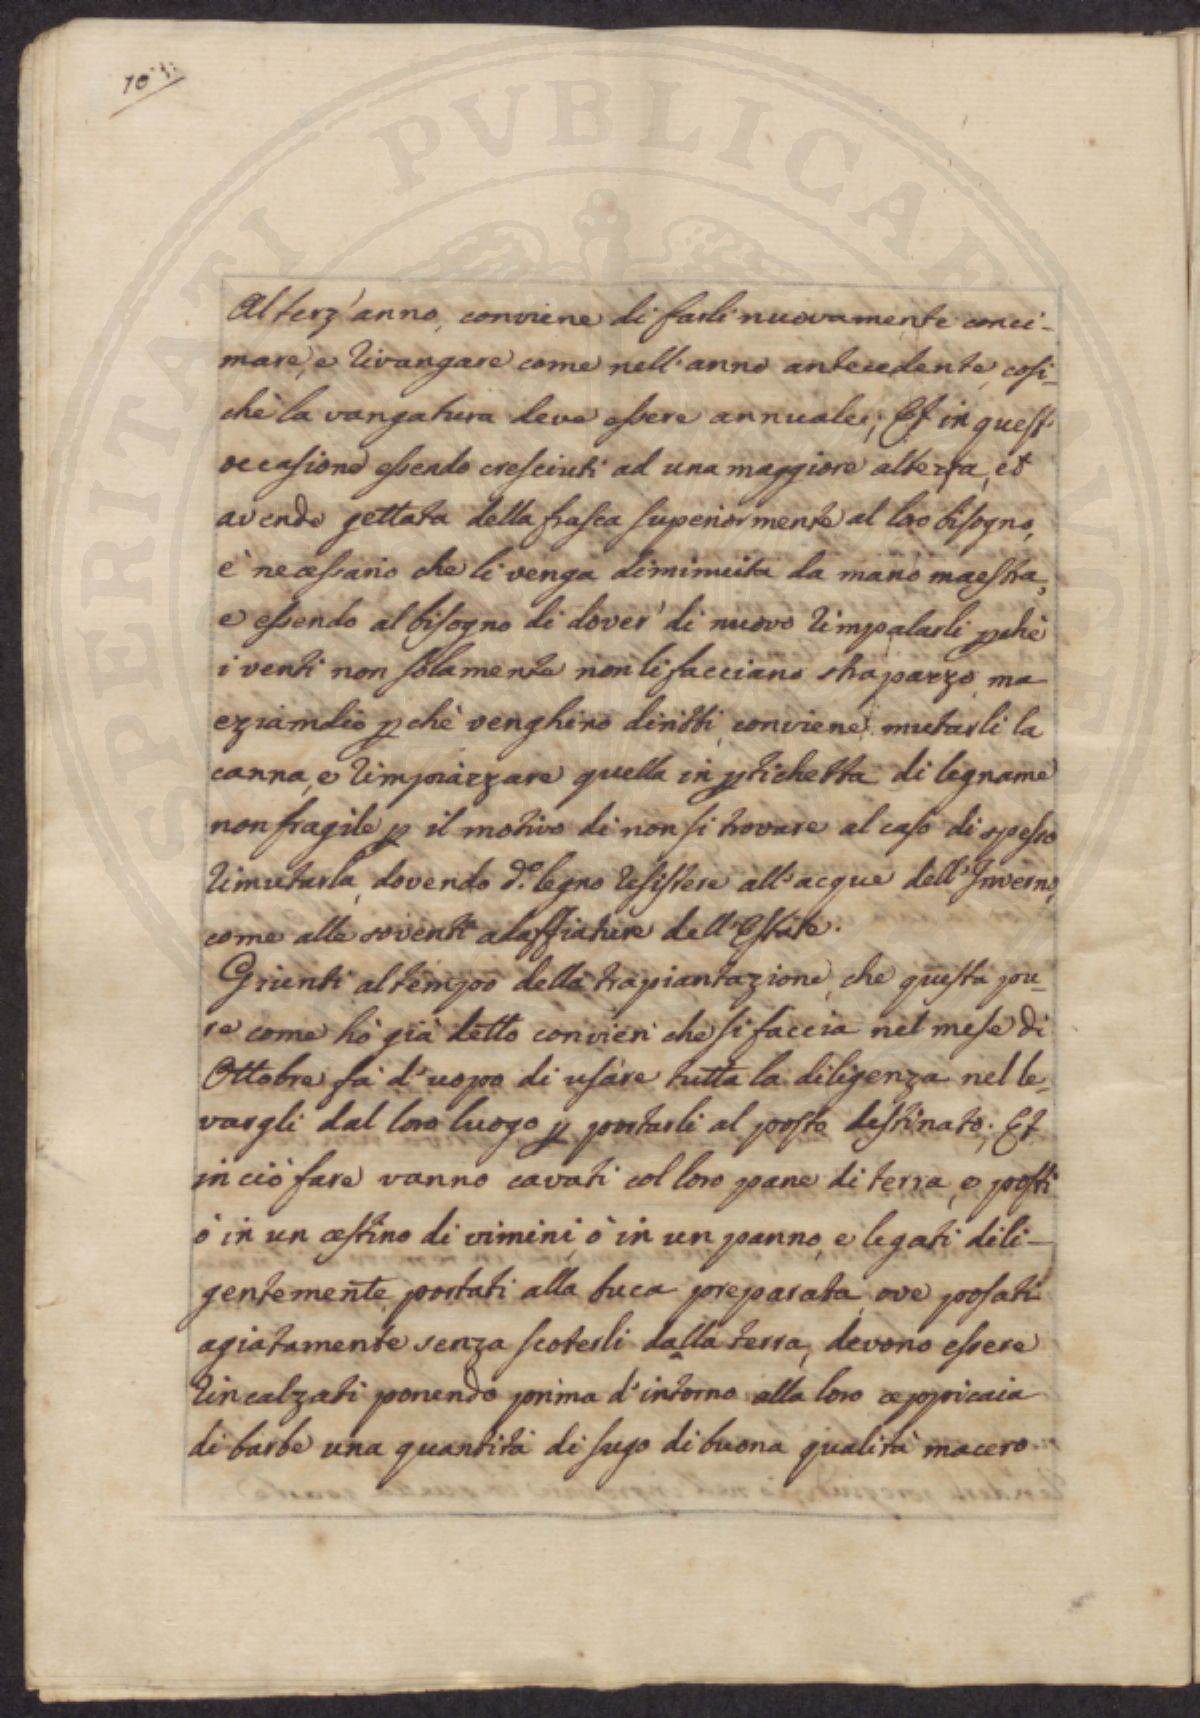 10
Al terz'anno, conviene di farli nuovamente conci-
mare, e rivangare come nell'anno antecedente, cosi-
chè la vangatura deve essere annuale; Et in quest'
occasione essendo cresciuti ad una maggiore altezza, et
avendo gettata della frasca superiormente al loro bisogno,
è necessario che li venga diminuita da mano maestra,
e essendo al bisogno di dover' di nuovo rimpalarli pchè
i venti non solamente non li facciano strapazzo, ma
eziamdio pchè venghino diritti, conviene mutarli la
canna, e rimpiazzare quella in ptichetta di legname
non fragile p il motivo di non si trovare al caso di spesso
rimutarla, dovendo d.o legno resistere all'acque dell'Inverno,
come alle soventi adaffiature dell'Estate.
Giunti al tempo della trapiantazione, che questa pu-
re come hò già detto convien che si faccia nel mese di
Ottobre fà d'uopo di usare tutta la diligenza nel le-
vargli dal loro luogo p portarli al posto destinato; Et
in ciò fare vanno cavati col loro pane di terra, e posti
ò in un cestino di vimini, ò in un panno, e legati dili-
gentemente, portati alla buca preparata, ove posati
agiatamente senza scoterli dalla terra, devono essere
rincalzati ponendo prima d'intorno alla loro ceppicaia
di barbe una quantità di sugo di buona qualità macero
SPERITATI PVBLICAE